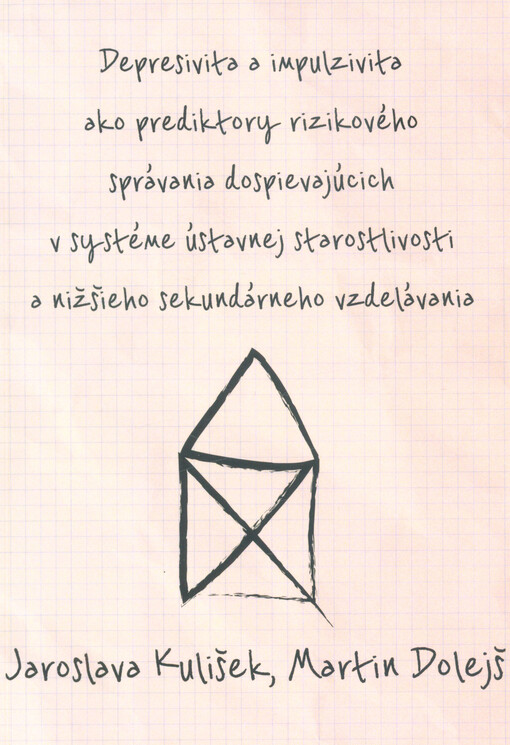 Depresivita a impulzivita
ako prediktory rizikového
správania dospievajúcich
v systéme ústavnej starostlivosti
a nižšieho sekundárneho vzdelávania
Jaroslava Kulišek, Martin Dolejš